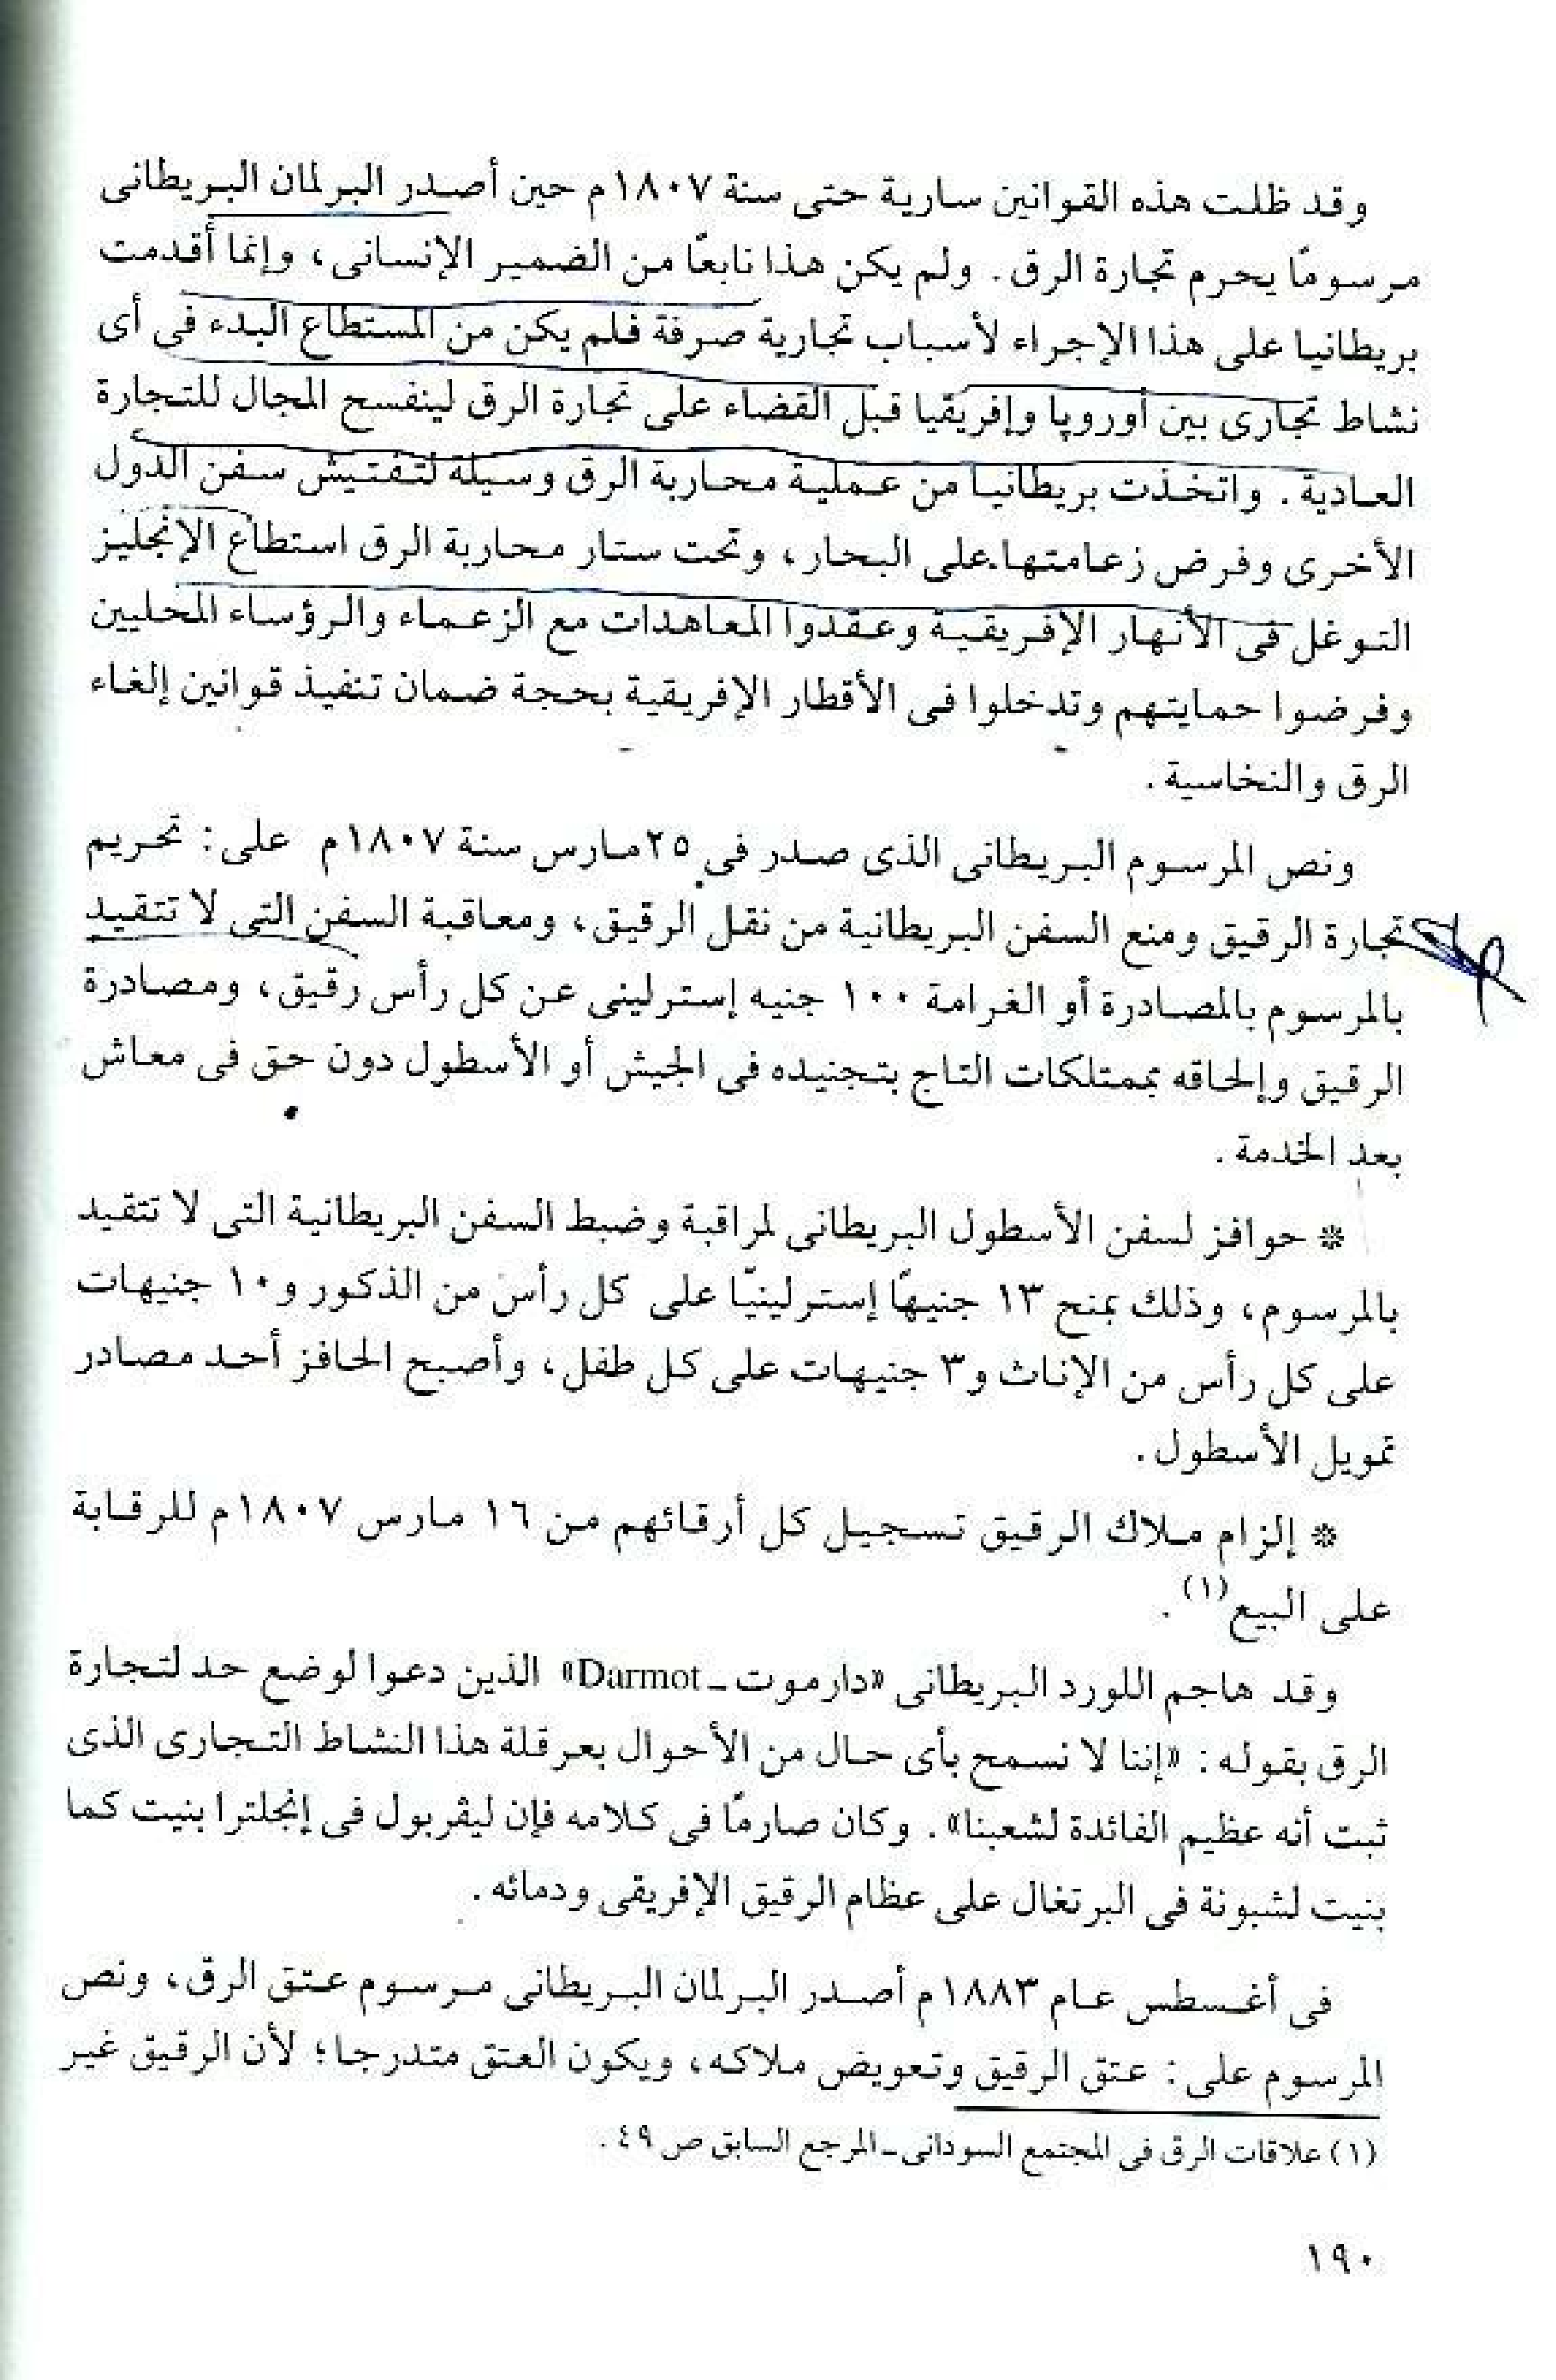 وقد ظلت هذه القوانين سارية حتى سنة ١٨٠٧م حين أصدر البرلمان البريطانى
مرسومًا يحرم تجارة الرق. ولم يكن هذا نابعًا من الضمير الإنسانى، وإنما أقدمت
بريطانيا على هذا الإجراء لأسباب تجارية صرفة فلم يكن من المستطاع البدء فى أى
نشاط تجارى بين أوروپا وإفريقيا قبل القضاء على تجارة الرق لينفسح المجال للتجارة
العادية. واتخذت بريطانيا من عملية محاربة الرق وسيلة لتفتيش سفن الدول
الأخرى وفرض زعامتها على البحار، وتحت ستار محاربة الرق استطاع الإنجليز
التوغل فى الأنهار الإفريقية وعقدوا المعاهدات مع الزعماء والرؤساء المحليين
وفرضوا حمايتهم وتدخلوا فى الأقطار الإفريقية بحجة ضمان تنفيذ قوانين إلغاء
الرق والنخاسية.
ونص المرسوم البريطانى الذى صدر فى ٢٥مارس سنة ١٨٠٧م على: تحريم
تجارة الرقيق ومنع السفن البريطانية من نقل الرقيق، ومعاقبة السفن التى لا تتقيد
بالمرسوم بالمصادرة أو الغرامة ١٠٠ جنيه إسترلينى عن كل رأس رقيق، ومصادرة
الرقيق وإلحاقه بممتلكات التاج بتجنيده فى الجيش أو الأسطول دون حق فى معاش
بعد الخدمة.
* حوافز لسفن الأسطول البريطانى لمراقبة وضبط السفن البريطانية التى لا تتقيد
بالمرسوم، وذلك بمنح ١٣ جنيهًا إسترلينيّا على كل رأس من الذكور و١٠ جنيهات
على كل رأس من الإناث و٣ جنيهات على كل طفل، وأصبح الحافز أحد مصادر
تمويل الأسطول.
* إلزام ملاك الرقيق تسجيل كل أرقائهم من ١٦ مارس ١٨٠٧م للرقابة
على البيع(١).
وقد هاجم اللورد البريطانى «دارموت ـ Darmot» الذين دعوا لوضع حد لتجارة
الرق بقوله: «إننا لا نسمح بأى حال من الأحوال بعرقلة هذا النشاط التجارى الذى
ثبت أنه عظيم الفائدة لشعبنا». وكان صارمًا فى كلامه فإن ليڤربول فى إنجلترا بنيت كما
بنيت لشبونة فى البرتغال على عظام الرقيق الإفريقى ودمائه.
فى أغسطس عام ١٨٨٣م أصدر البرلمان البريطانى مرسوم عتق الرق، ونص
المرسوم على: عتق الرقيق وتعويض ملاكه، ويكون العتق متدرجا؛ لأن الرقيق غير
(١) علاقات الرق فى المجتمع السودانى ـ المرجع السابق ص ٤٩.
١٩٠